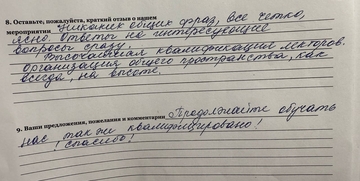 8. Оставьте, пожалуйста, краткий отзыв о нашем
мероприятии Никаких общих фраз, все четко,
ясно. Ответы на интересующие
вопросы сразу.
Высочайшая квалификация лекторов.
Организация общего пространства, как
всегда, на высоте.
9. Ваши предложения, пожелания и комментарии Продолжайте обучать
нас так же квалифицировано!
Спасибо!